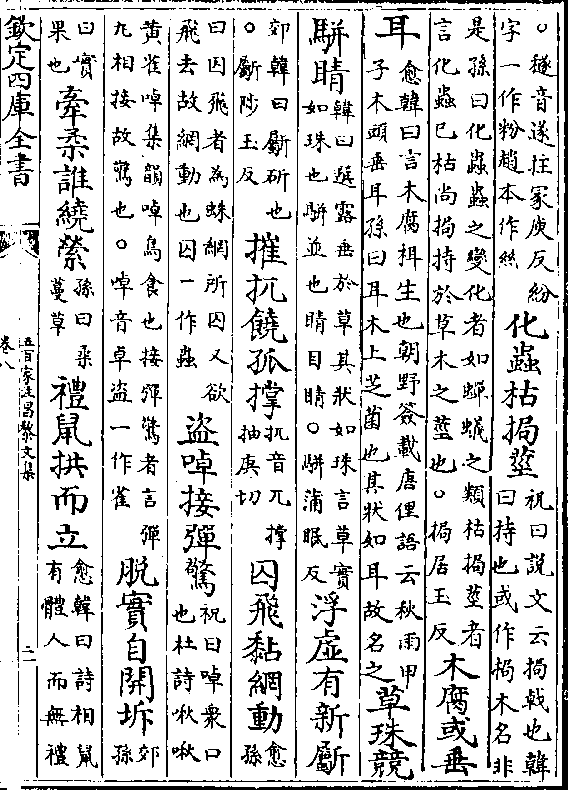 。穟音遂拄冡庾反紛
字一作粉趙本作絲
化蟲枯挶莖
祝曰説文云挶㦸也韓
曰持也或作梮木名非
是孫曰化蟲蟲之變化者如螂蟻之類枯挶莖者
言化蟲已枯尚挶持於草木之莖也。挶居玉反
木腐或垂
耳
愈韓曰言木腐栮生也朝野簽載唐俚語云秋雨甲
子木頭垂耳孫曰耳木上芝菌也其狀如耳故名之
草珠競
駢睛
韓曰選露垂於草其狀如珠言草實
如珠也駢並也睛目睛。駢蒲眠反
浮虛有新斸
郊韓曰斸斫也
。斸陟玉反
摧扤饒孤撑
扤音兀撑
抽庚切
囚飛黏網動
愈
孫
曰囚飛者為蛛網所囚又欲
飛去故網動也囚一作蟲
盜啅接彈驚
祝曰啅衆口
也杜詩啾啾
黄雀啅集韻啅鳥食也接彈驚者言彈
九相接故驚也。啅音卓盜一作雀
脱實自開坼
郊
孫
曰實
果也
牽柔誰繞縈
孫曰柔
蔓草
禮鼠拱而立
愈韓曰詩相鼠
有體人而無禮
欽定四庫全書
五百家注昌黎文集
卷八
二